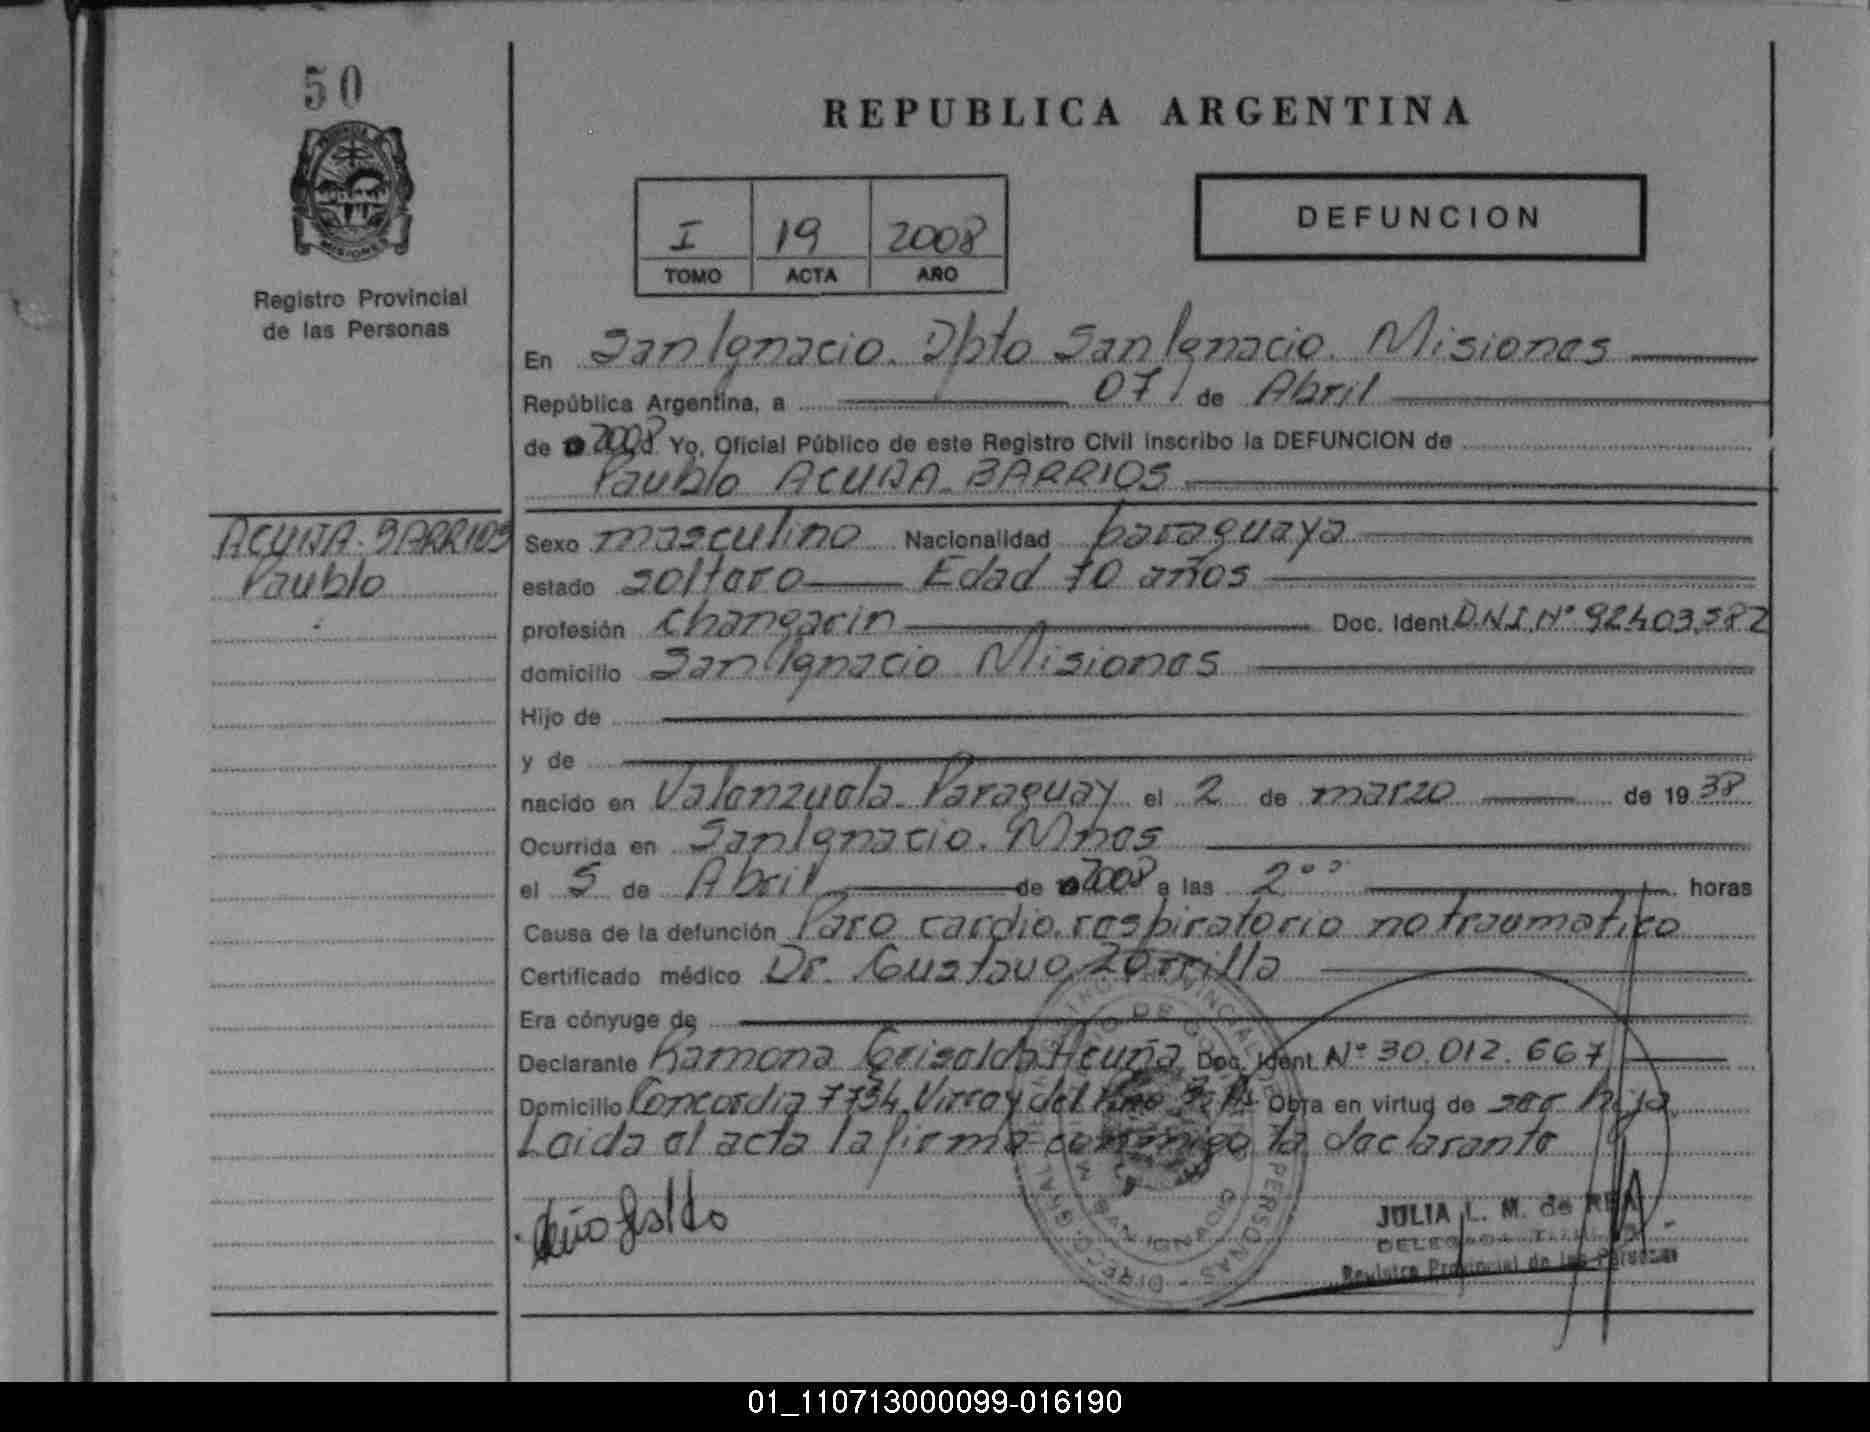 50
MISIONES
Registro Provincial
de las Personas
REPUBLICA ARGENTINA
I 19 2008
TOMO ACTA AÑO
DEFUNCION
En San Ignacio. Dpto San Ignacio. Misiones
República Argentina, a 07 de Abril
de 2008 Yo, Oficial Público de este Registro Civil inscribo la DEFUNCION de
Paublo ACUÑA BARRIOS
ACUÑA BARRIOS
Paublo
Sexo masculino Nacionalidad paraguaya
estado soltero Edad 70 años
profesión changarin Doc. Ident. D.N.I. Nº 92403,582
domicilio San Ignacio Misiones
Hijo de
y de
nacido en Valenzuela Paraguay el 2 de marzo de 1938
Ocurrida en San Ignacio. Mnes
el 5 de Abril de 2008 a las 2°° horas
Causa de la defunción Paro cardio respiratorio no traumatico
Certificado médico Dr. Gustavo Zorrilla
Era cónyuge de
Declarante Ramona Griselda Acuña Doc. Ident. Nº 30.012.667
Domicilio Concordia 7734 Virrey del Pino Bs As Obra en virtud de ser hija
Leida el acta la firma conmigo la declarante
JULIA L. M. de REA
DELEGADA TITULAR
Registro Provincial de las Personas
01_110713000099-016190